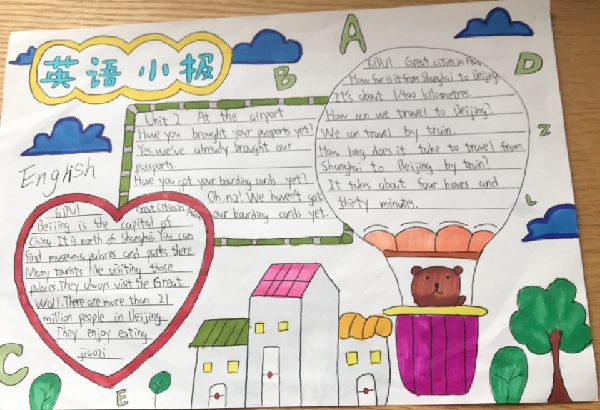 英语小报
A
B
C
D
E
Z
L
English
Unit 2 At the airport
Have you brought your passports yet?
Yes, we've already brought our
passports.
Have you got your boarding cards yet?
Oh, no! We haven't got
our boarding cards yet.
Great cities in Asia
How far is it from Shanghai to Beijing
It's about 1400 kilometres.
How can we travel to Beijing?
We can travel by train.
How long does it take to travel from
Shanghai to Beijing by train?
It takes about four hours and
thirty minutes.
Great cities in Asia
Beijing is the capital of
China. It is north of Shanghai. You can
find museums, palaces and parks there.
Many tourists like visiting those
palaces. They always visit the Great
Wall. There are more than 21
million people in Beijing.
They enjoy eating
jiaozi.